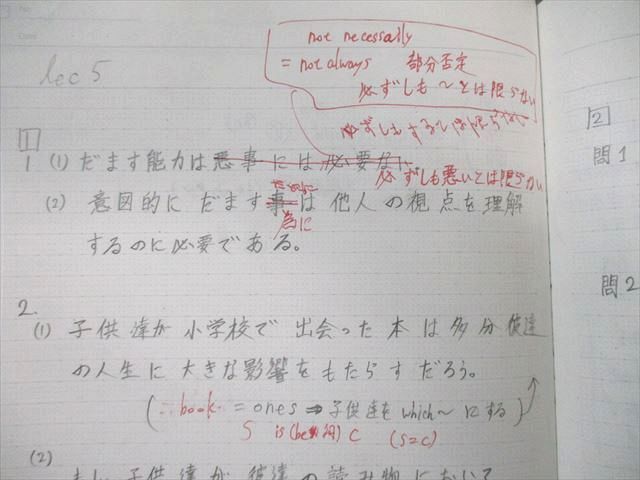 lec 5
not necessarily
= not always 部分否定
必ずしも～とは限らない
必ずしもするとは限らない
1
1 (1) だます能力は悪事には必要ない
必ずしも悪いとは限らない
(2) 意図的にだます事は他人の視点を理解
為に
するのに必要である。
2.
(1) 子供達が小学校で出会った本は多分彼達
の人生に大きな影響をもたらすだろう。
(∴book = ones ⇒ 子供達を which～にする)
S is(be動詞) C (S=C)
(2)
もし子供達が彼達の読み物において
2
問1
問2